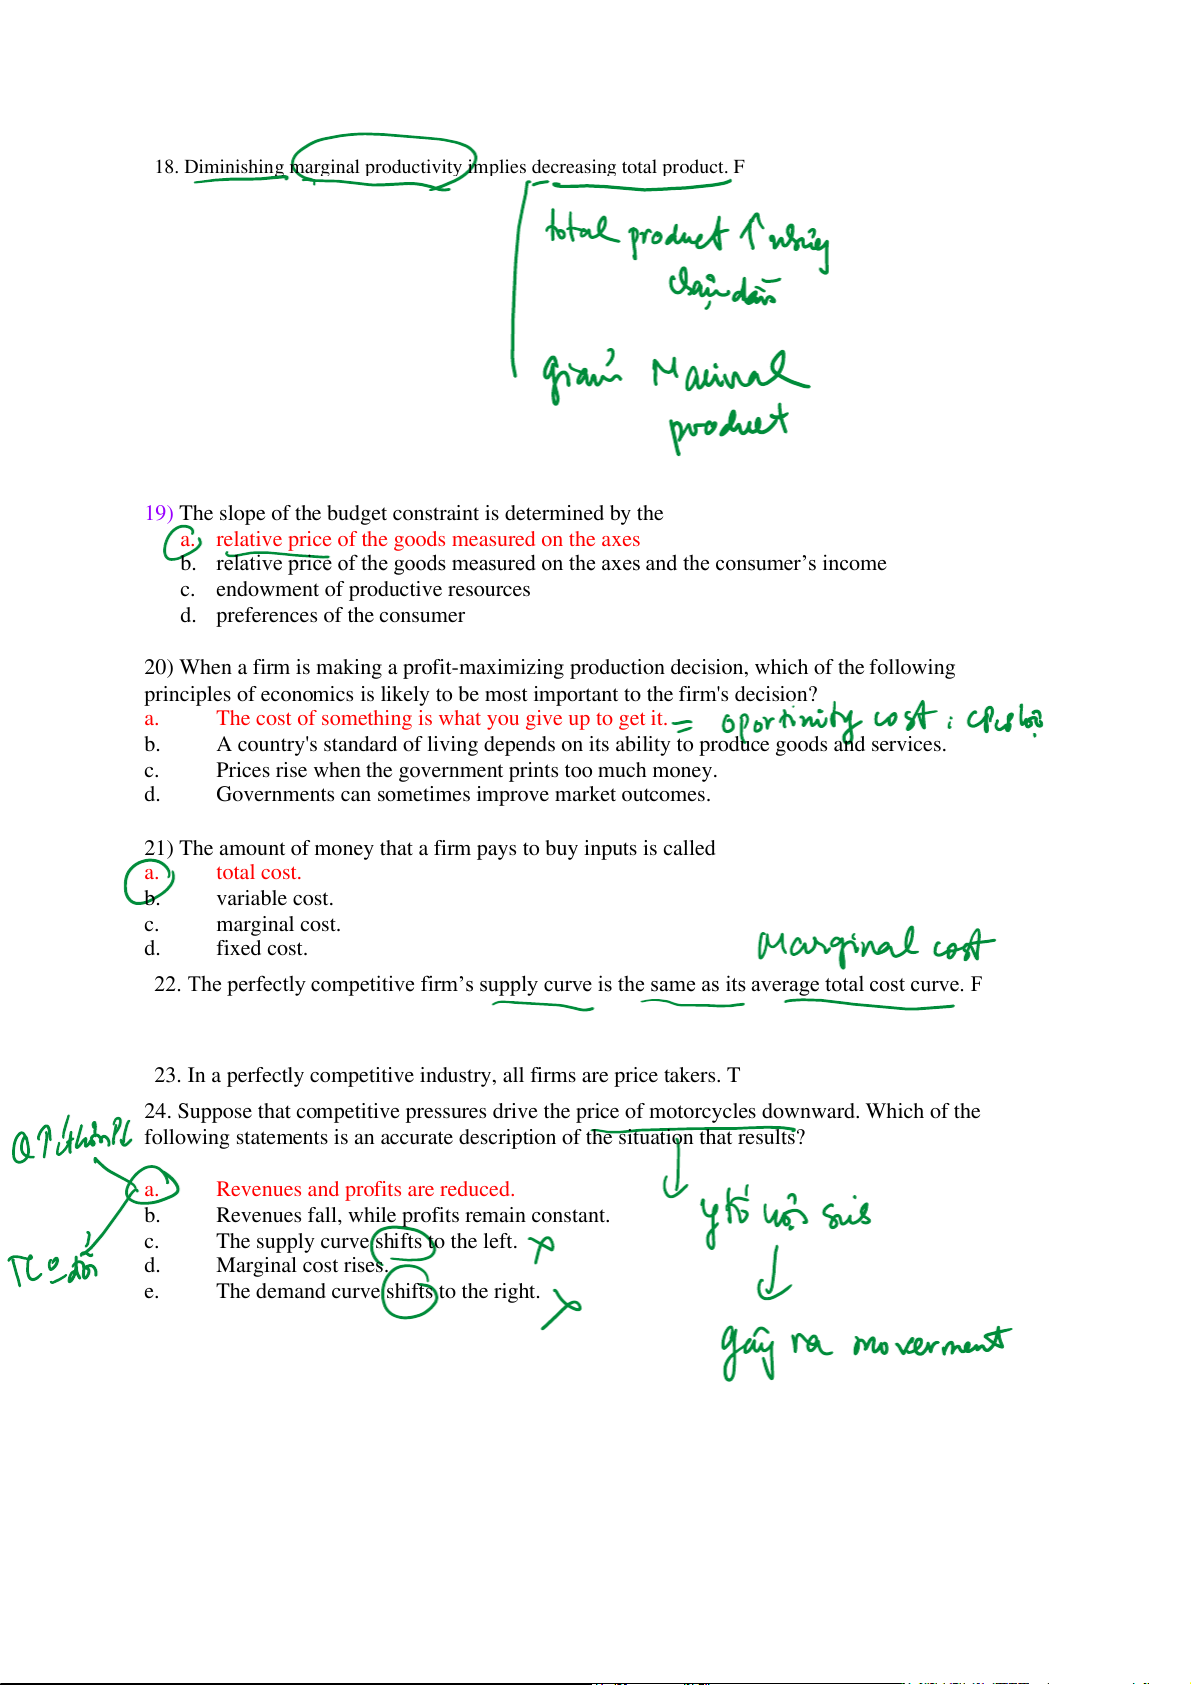 18. Diminishing marginal productivity implies decreasing total product. F
total product ↑ nhưng
chậm dần
giảm Maginal
product
19) The slope of the budget constraint is determined by the
a. relative price of the goods measured on the axes
b. relative price of the goods measured on the axes and the consumer’s income
c. endowment of productive resources
d. preferences of the consumer
20) When a firm is making a profit-maximizing production decision, which of the following
principles of economics is likely to be most important to the firm's decision?
a. The cost of something is what you give up to get it. = oportinity cost : CPCH
b. A country's standard of living depends on its ability to produce goods and services.
c. Prices rise when the government prints too much money.
d. Governments can sometimes improve market outcomes.
21) The amount of money that a firm pays to buy inputs is called
a. total cost.
b. variable cost.
c. marginal cost.
d. fixed cost.
Marginal cost
22. The perfectly competitive firm’s supply curve is the same as its average total cost curve. F
23. In a perfectly competitive industry, all firms are price takers. T
24. Suppose that competitive pressures drive the price of motorcycles downward. Which of the
following statements is an accurate description of the situation that results?
a. Revenues and profits are reduced.
b. Revenues fall, while profits remain constant.
c. The supply curve shifts to the left.
d. Marginal cost rises.
e. The demand curve shifts to the right.
ytố nội sinh
gây ra moverment